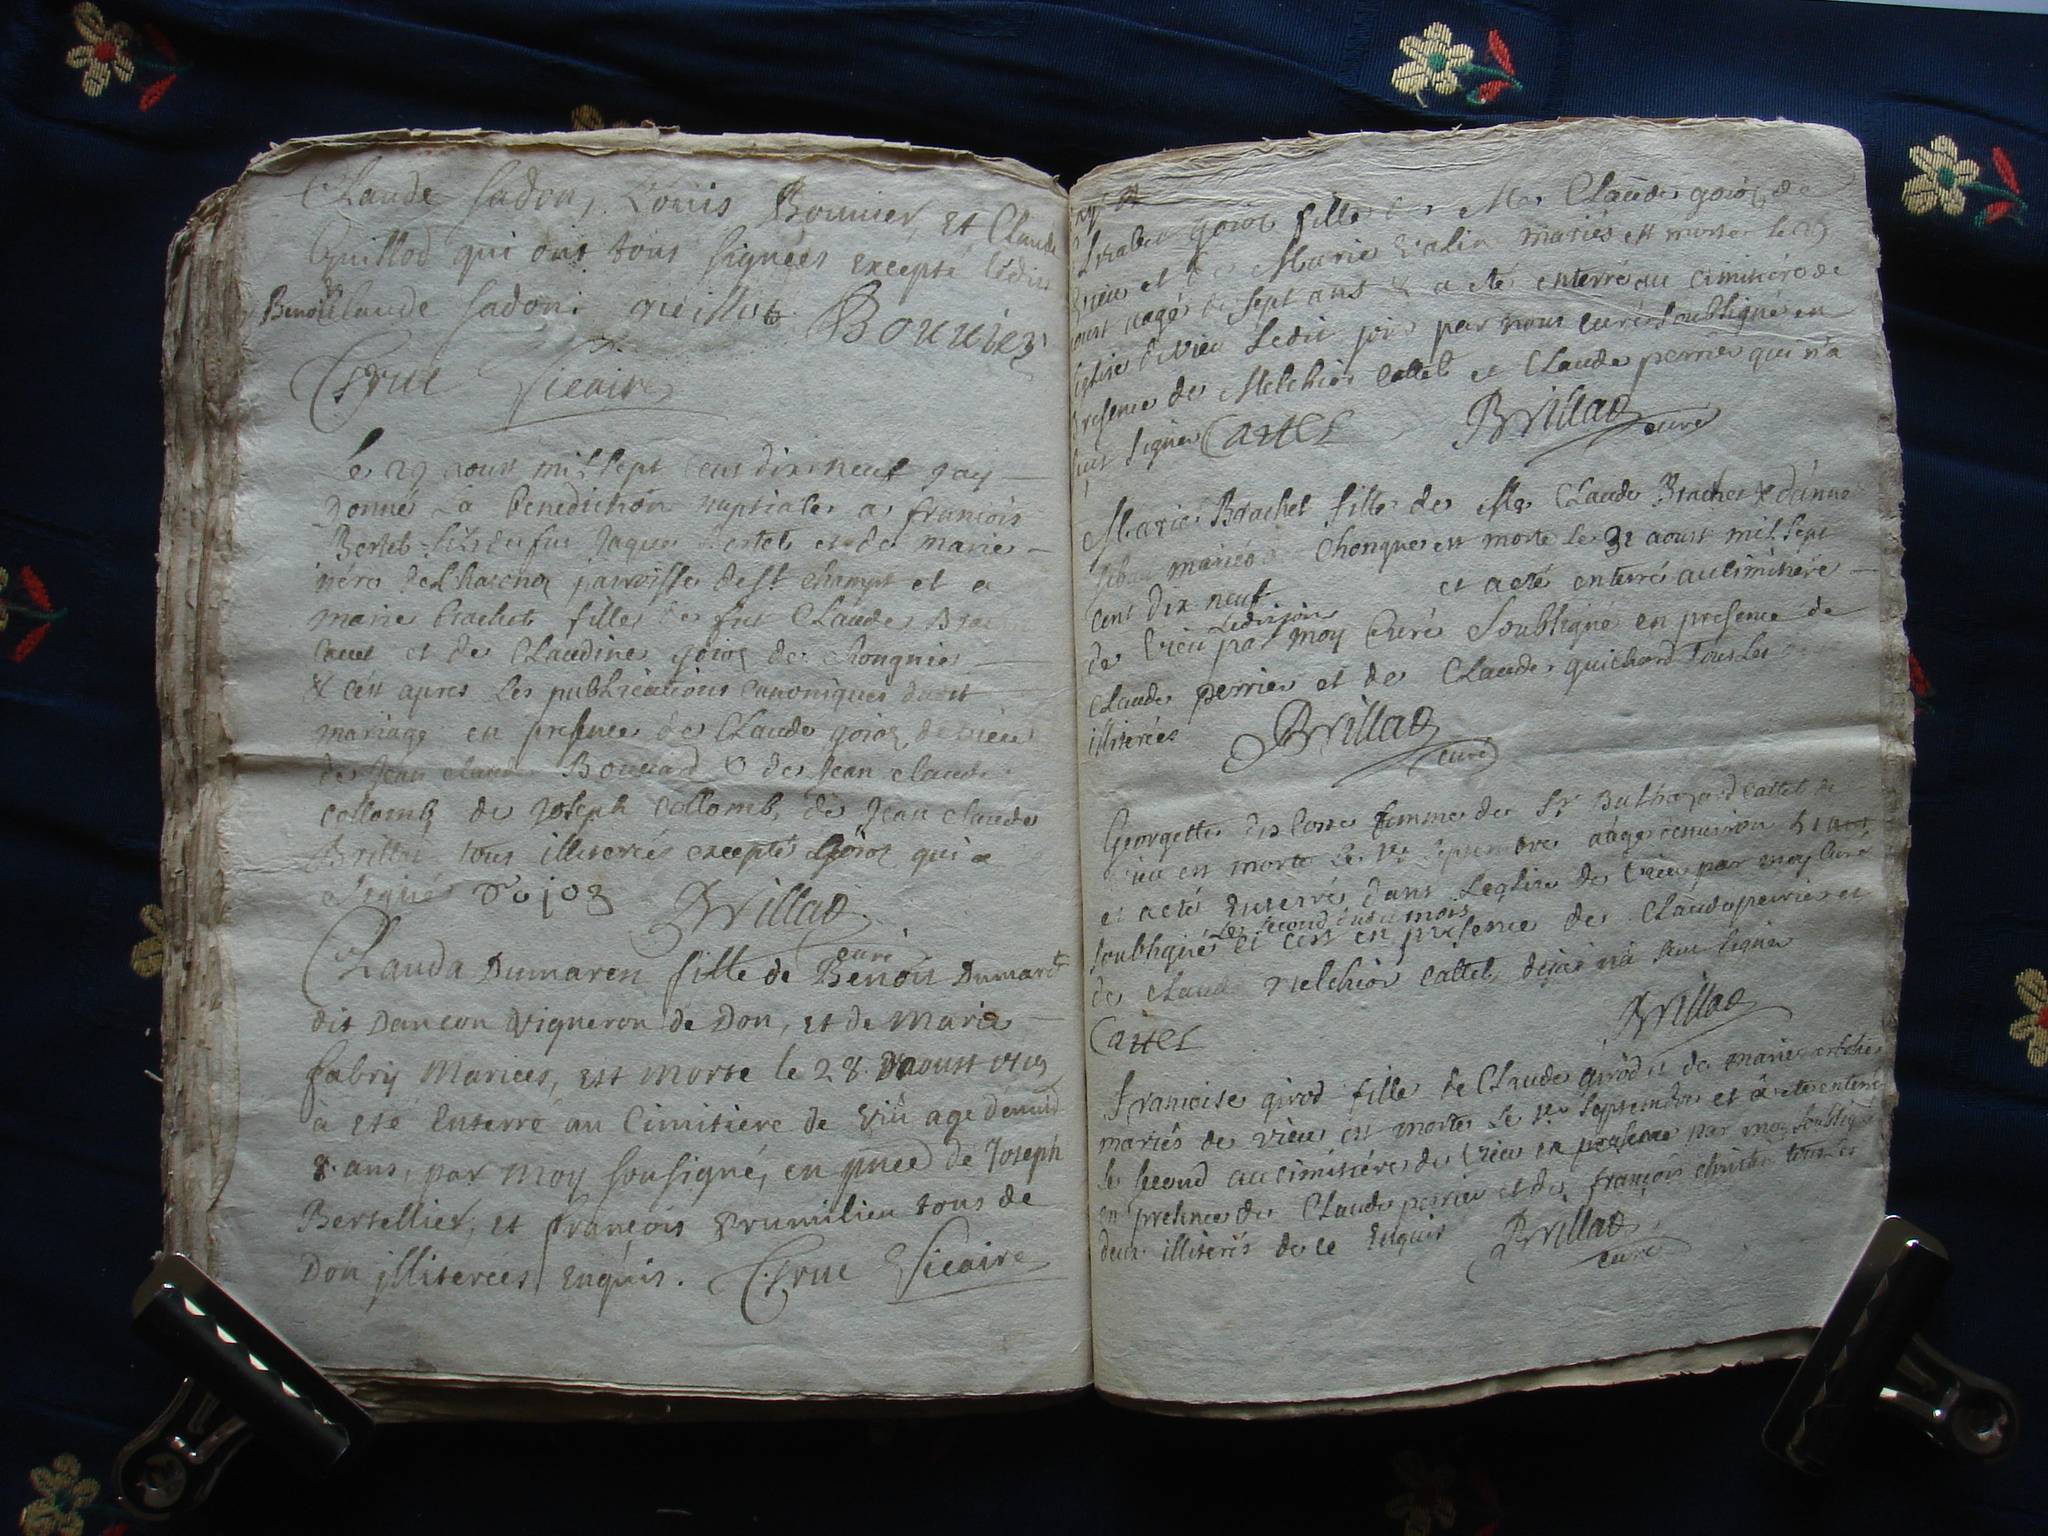 Claude Jadon, Louis Bouuier, et Claude
Guillod qui ont tous signées excepté ledit
Benoit Claude Jadon. Guillot Bouuier
Vicaire
Le 29 aoust mil sept cens dix neuf jay
donné la benediction nuptiale a françois
Bertet fils du fut Jaques Bertet et de marie
paroisse de st champt et a
marie brachet fille de fut Claude Bra
chet et de Claudine goiot de Chongnes
& cest apres les publications canoniques dudit
mariage en presence de Claude goiot de vieu
de Jean claude Bouuard & de Jean claude
collomb de Joseph collomb, de Jean claude
Brillat tous illiterés excepté goiot qui a
signé Brillat
curé
Clauda Dumaren fille de Benoit Dumaret
dit Dancon vigneron de Don, et de Marie
fabry Mariées, est morte le 28 Daoust 1719
à eté Enterré au Cimitiere de viû age denuid
8. ans, par moy sousigné, en pnce de Joseph
Bertellier, et françois Prumilieu tous de
Don illiterées Enquis. Vicaire
goiot fille de Me Claude goiot de
vieu et de Marie mariés est morte le 29
aoust aagé de sept ans & a eté enterré au cimitiére de
leglise de vieu ledit jour par nous curé soubsigné en
presence de Melchior Cattet et Claude perrier qui n'a
sut signer Cattet Brillat
curé
Marie Brachet fille de Me Claude Brachet & danne
mariés de Chongnes est morte le 31 aoust mil sept
cens dix neuf et a eté enterré au cimitiére
ledit jour
de vieu par moy Curé soubsigné en presence de
Claude perrier et de Claude guichard tous les
illiterées Brillat
curé
Georgette femme de Sr Balthazard Cattet de
vieu est morte le 1er septembre aagé denuiron ans
et a eté enterré dans leglise de vieu par moy Curé
le second dudit mois
soubsigné et cest en presence de Claude perrier et
de Claude Melchior Cattet, n'a sut signer
Cattet Brillat
françoise girod fille de Claude girod et de marie
mariés de vieu est morte le 1er septembre et a eté enterré
le second au cimitiére de vieu par moy soubsigné
en presence de Claude perrier et de françois tous les
deux illiterés de ce Enquis Brillat
curé